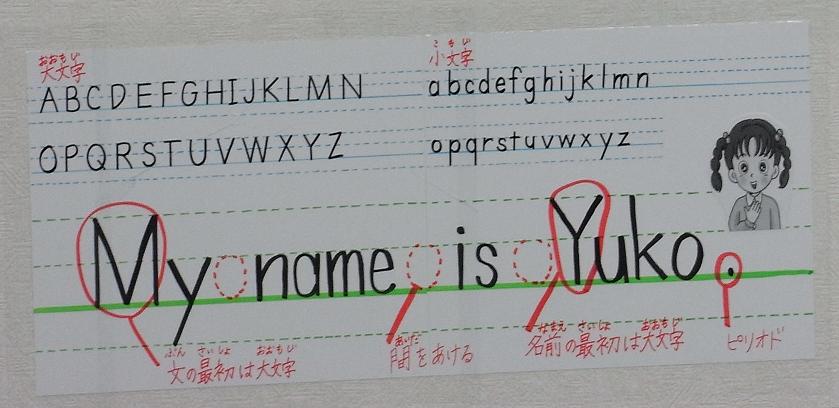 おおもじ
大文字
ABCDEFGHIJKLMN
OPQRSTUVWXYZ
こもじ
小文字
abcdefghijklmn
opqrstuvwxyz
My name is Yuko.
ぶん さいしょ おおもじ
文の最初は大文字
あいだ
間をあける
なまえ さいしょ おおもじ
名前の最初は大文字
ピリオド